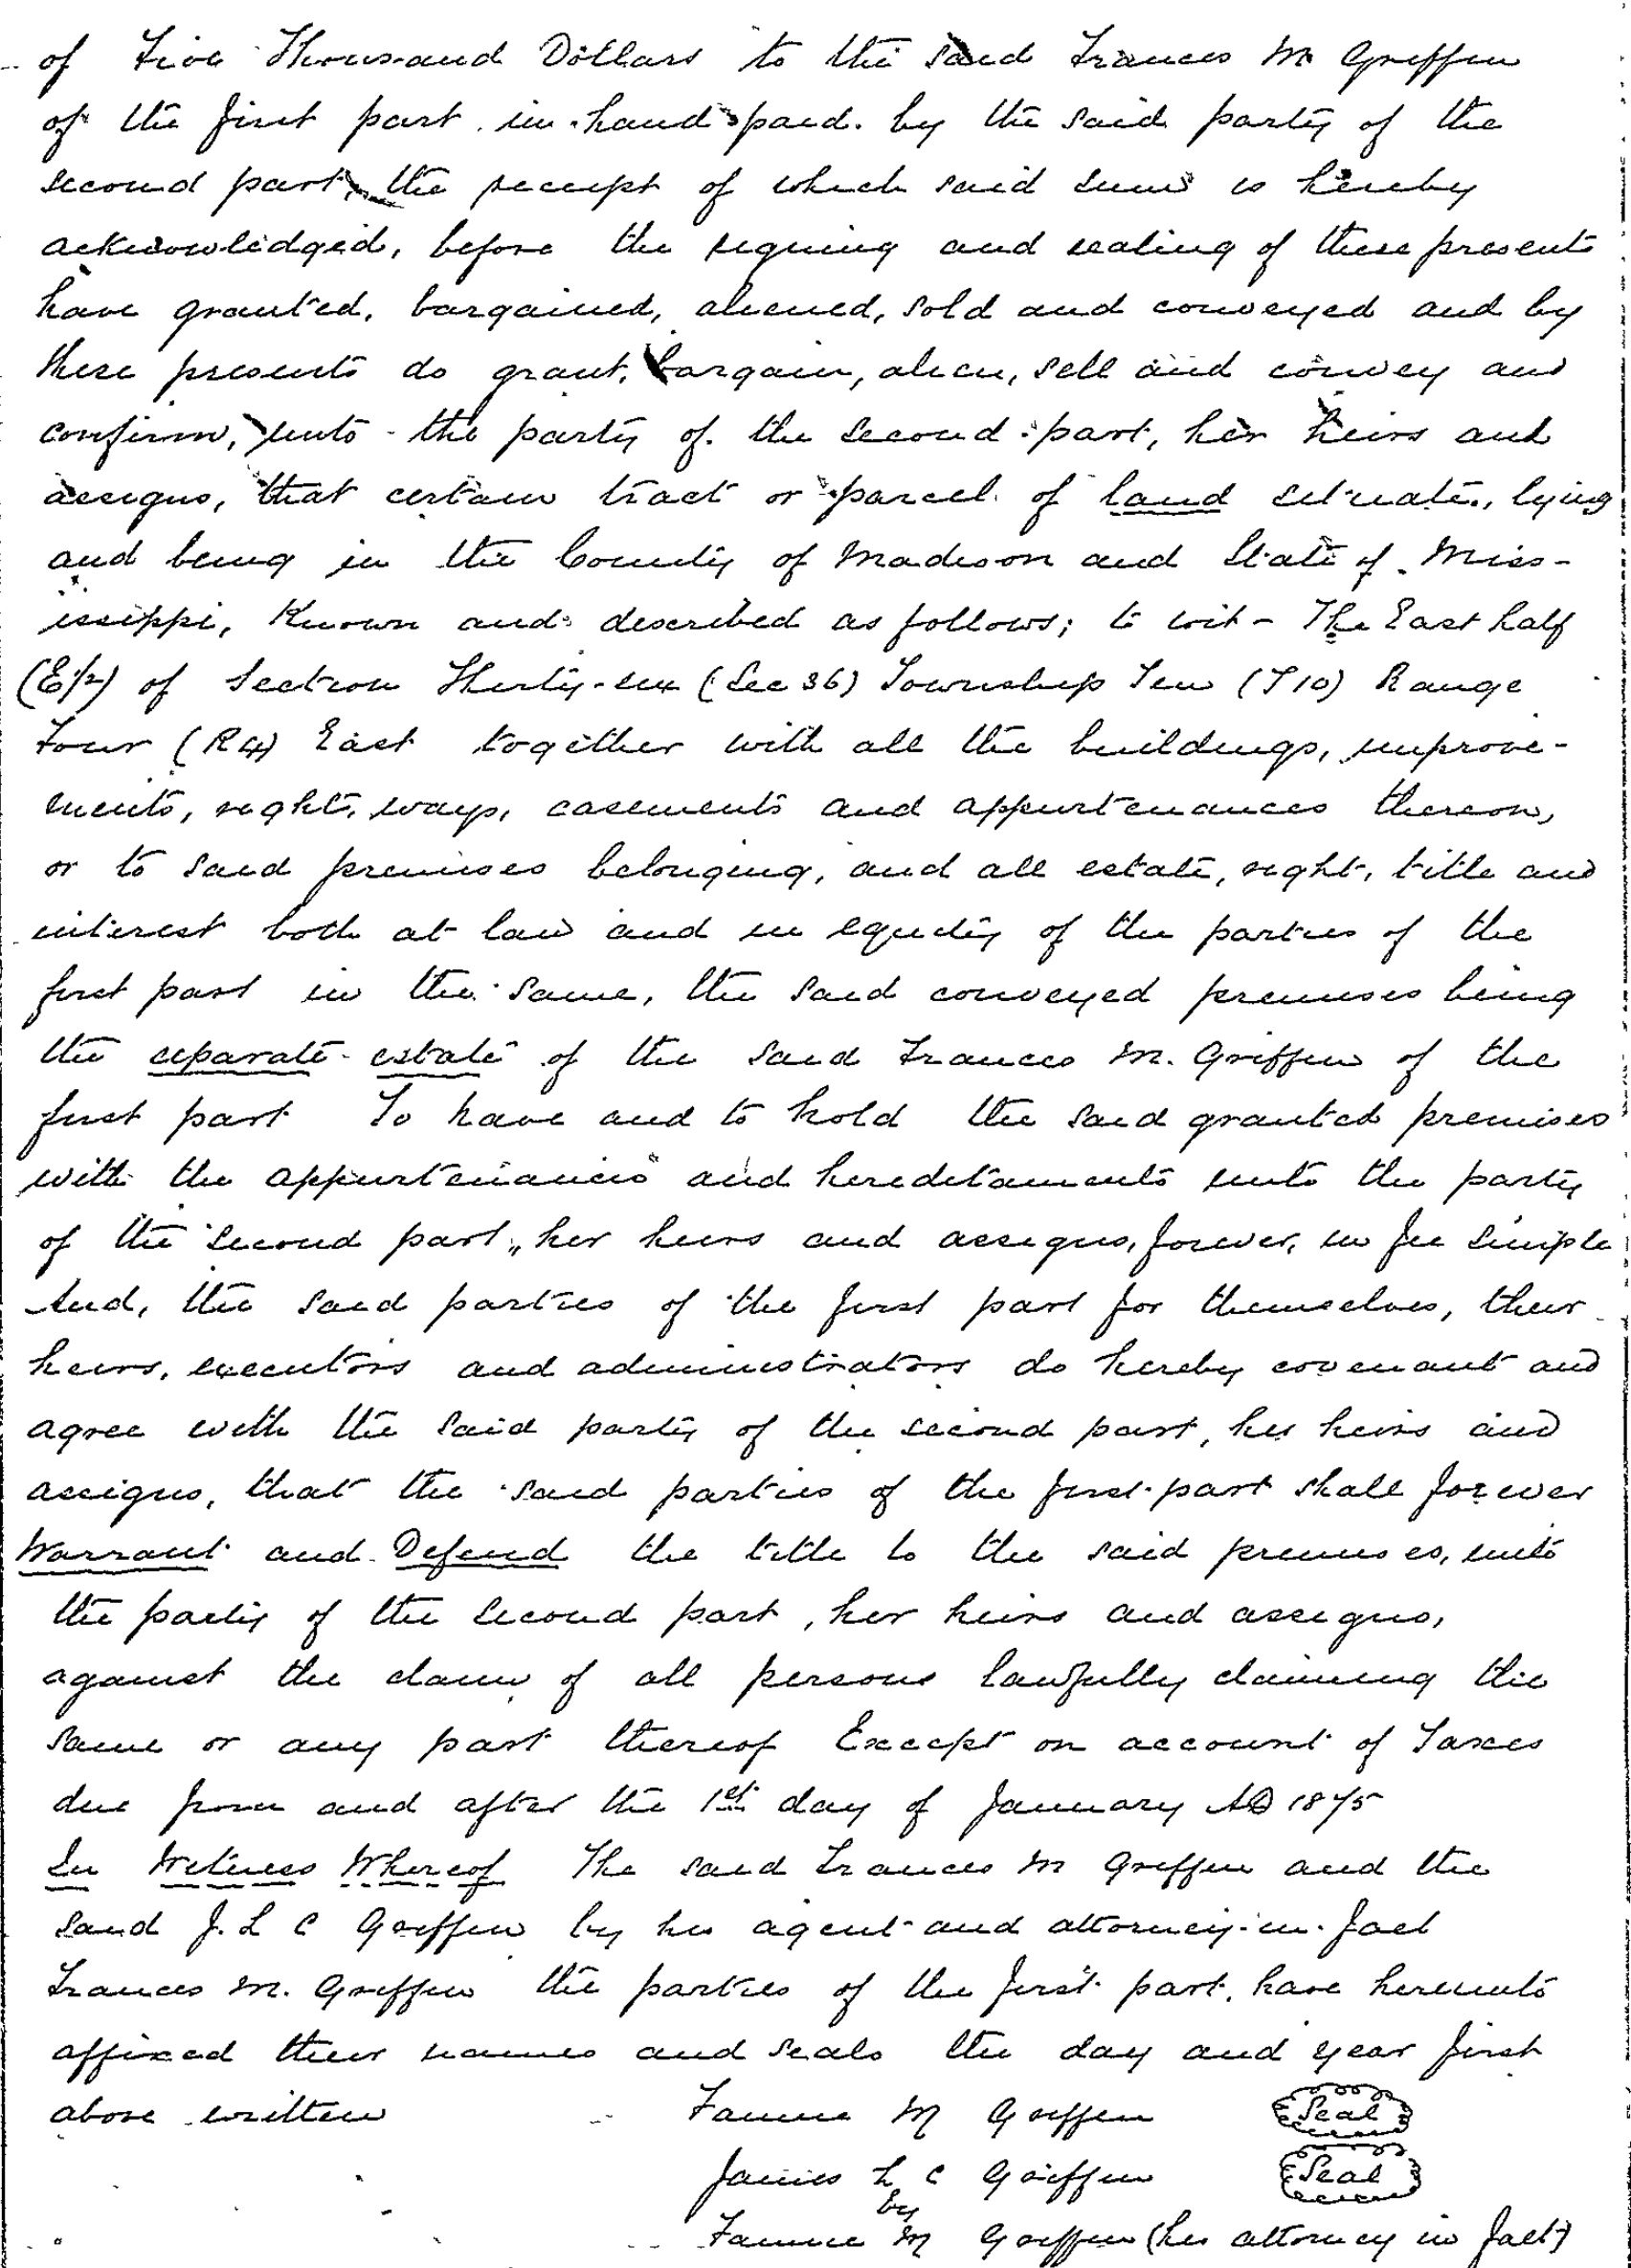 of Five Thousand Dollars to the said Frances M Griffin
of the first part in hand paid by the said party of the
second part, the receipt of which said sum is hereby
acknowledged, before the signing and sealing of these presents
have granted, bargained, aliened, sold and conveyed and by
these presents do grant, bargain, alien, sell and convey and
confirm, unto the party of the second part, her heirs and
assigns, that certain tract or parcel of land situate, lying
and being in the County of Madison and State of Miss-
issippi, Known and described as follows; to wit - The East half
(E1/2) of Section Thirty-six (Sec 36) Township Ten (T10) Range
Four (R4) East together with all the buildings, improve-
ments, rights, ways, easements and appurtenances thereon,
or to said premises belonging, and all estate, right, title and
interest both at law and in equity of the parties of the
first part in the same, the said conveyed premises being
the separate estate of the said Frances M. Griffin of the
first part To have and to hold the said granted premises
with the appurtenances and hereditaments unto the party
of the second part, her heirs and assigns, forever, in fee simple
And, the said parties of the first part for themselves, their
heirs, executors and administrators do hereby covenant and
agree with the said party of the second part, her heirs and
assigns, that the said parties of the first part shall forever
Warrant and Defend the title to the said premises, unto
the party of the second part, her heirs and assigns,
against the claim of all persons lawfully claiming the
same or any part thereof Except on account of Taxes
due from and after the 1st day of January AD 1875
In Witness Whereof The said Frances M Griffin and the
said J. L C Griffin by his agent and attorney-in-fact
Frances M. Griffin the parties of the first part, have hereunto
affixed their names and seals the day and year first
above written Fannie M Griffin Seal
James L C Griffin Seal
by
Fannie M Griffin (his attorney in fact)